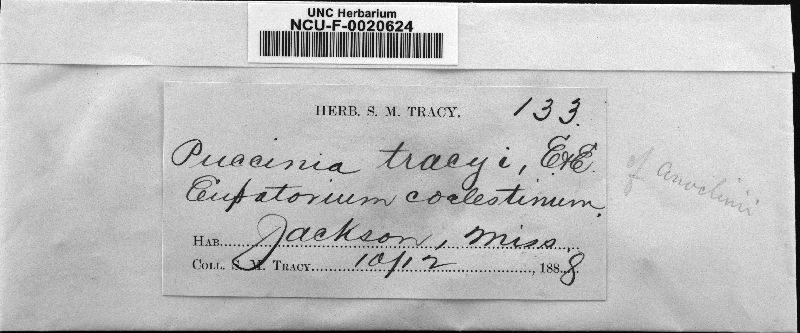 UNC Herbarium
NCU-F-0020624
HERB. S. M. TRACY. 133.
Puccinia tracyi, E&E.
Eupatorium coelestinum.
HAB. Jackson, Miss.
COLL. S. M. TRACY. 10/12, 1888.